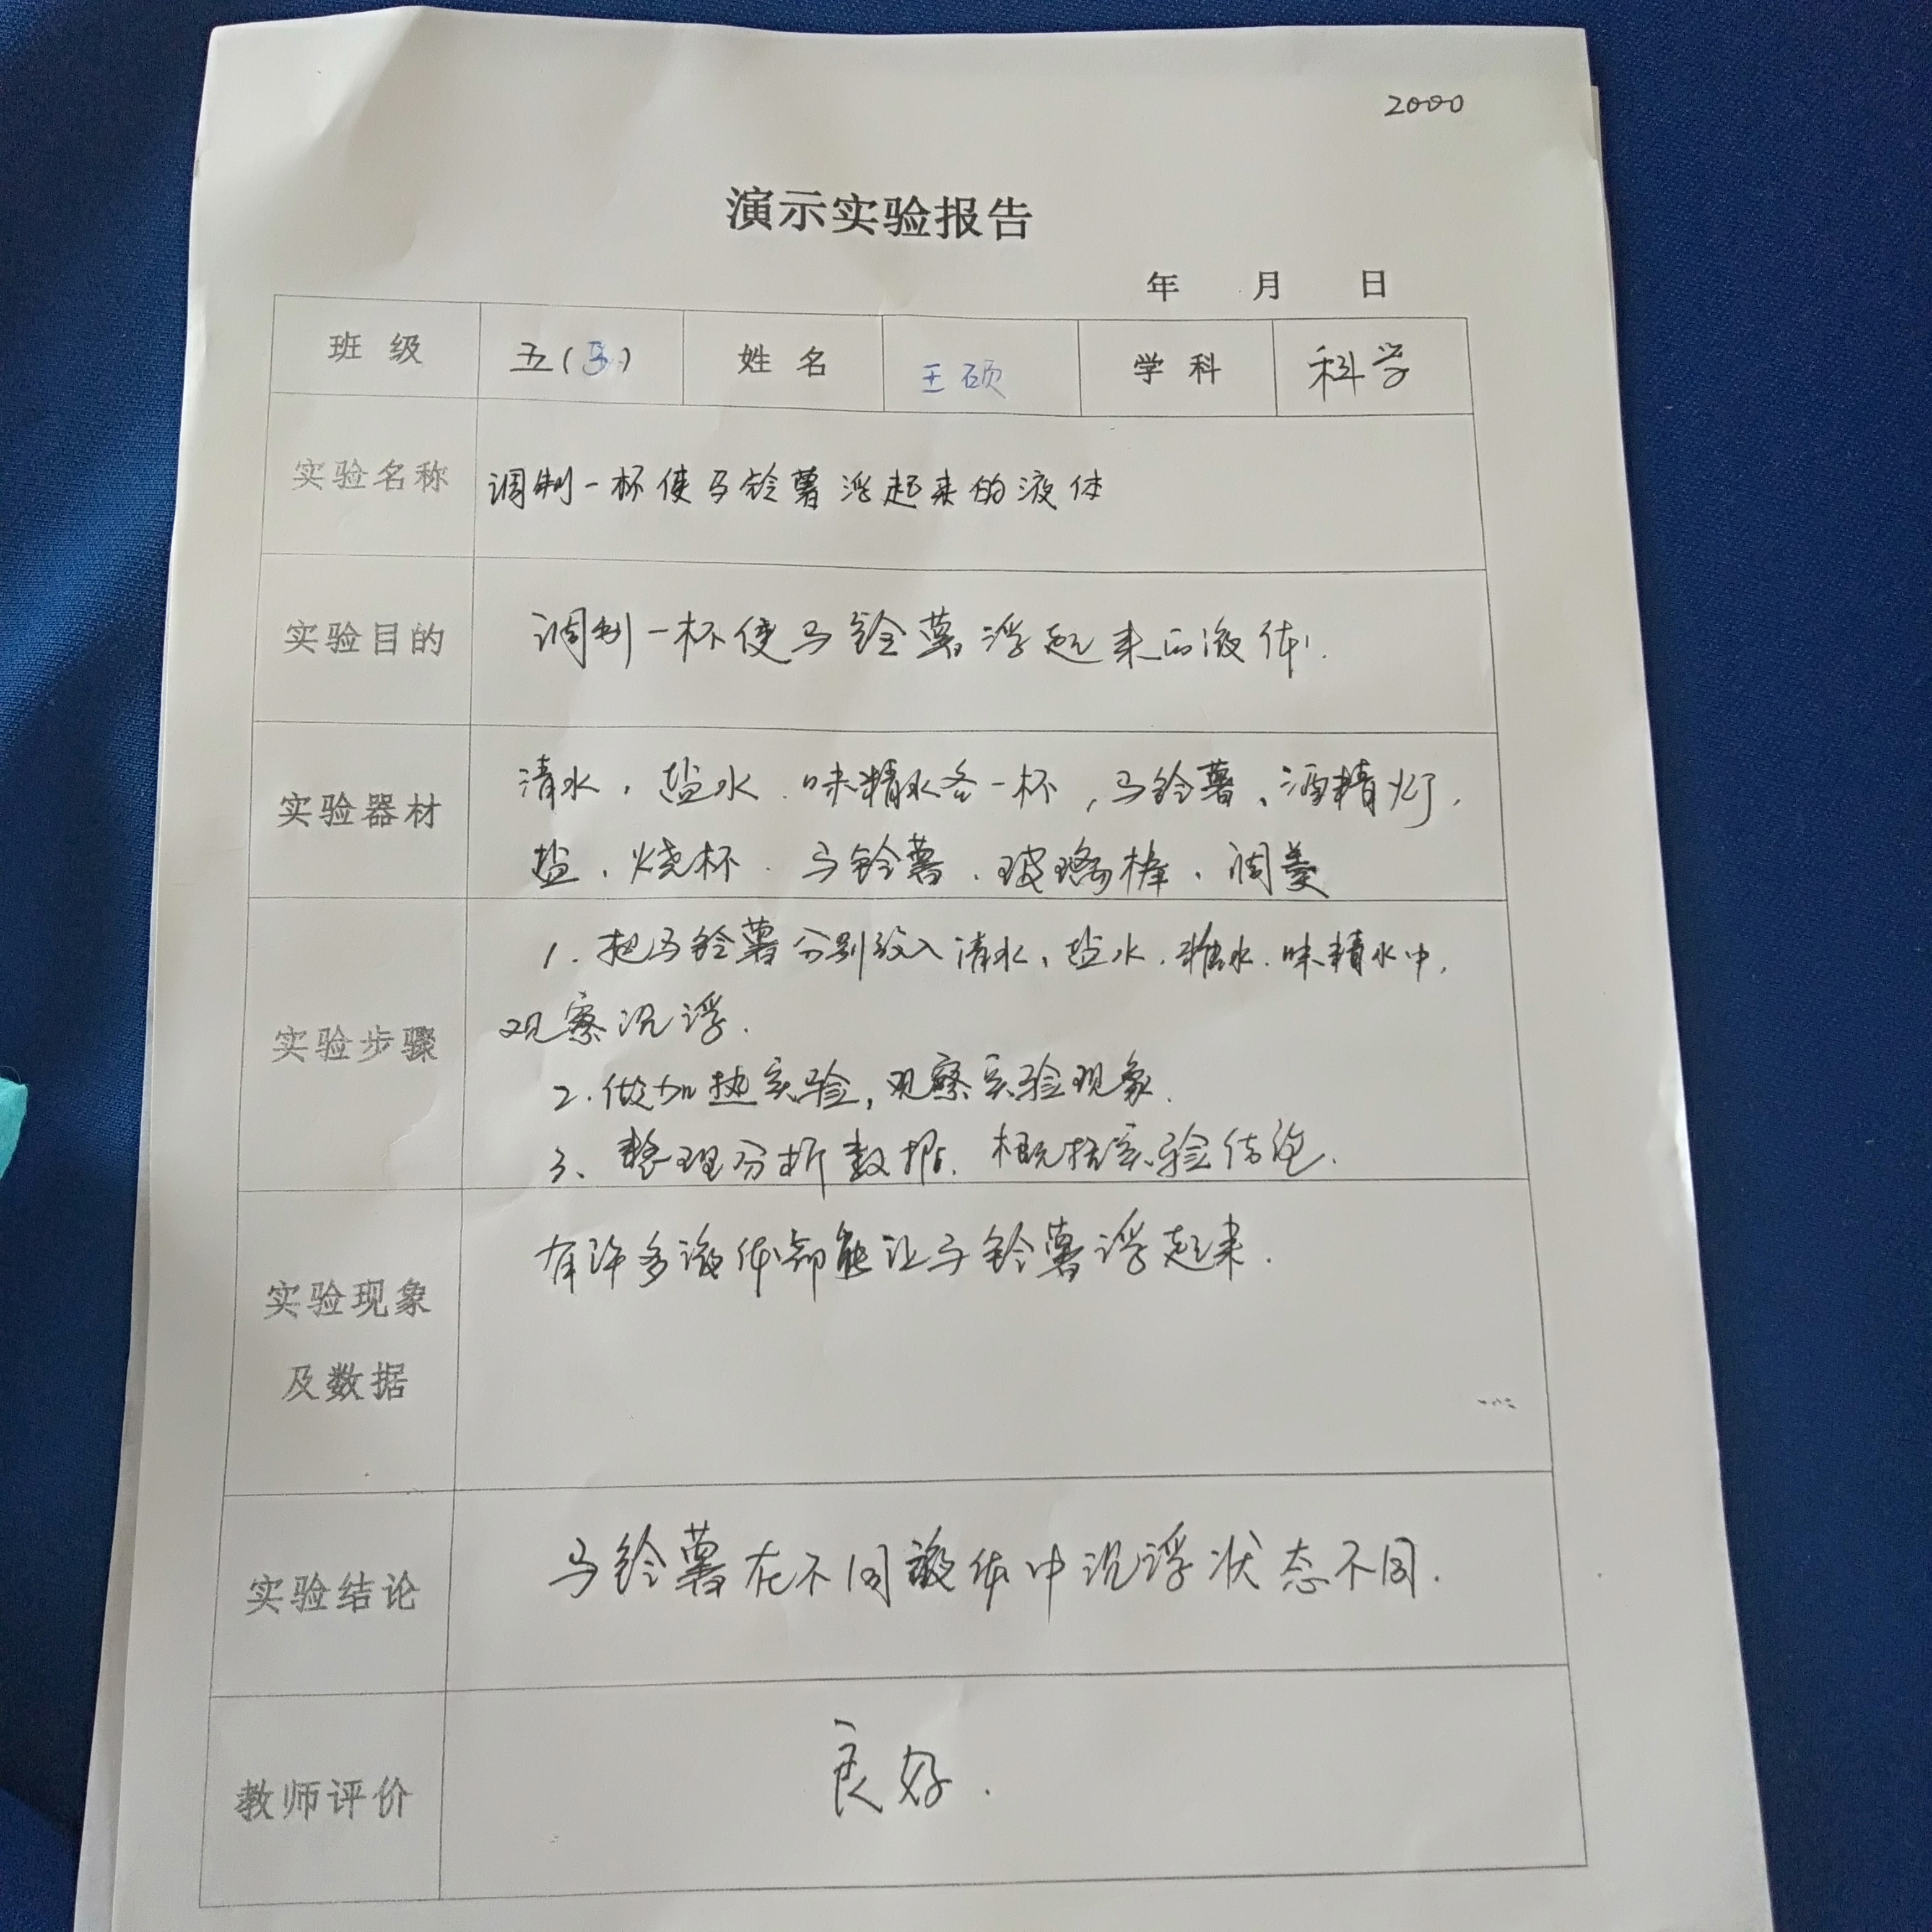 2000
演示实验报告
年 月 日
班 级 五(5) 姓 名 王硕 学 科 科学
实验名称 调制一杯使马铃薯浮起来的液体
实验目的 调制一杯使马铃薯浮起来的液体.
清水,盐水、味精水各一杯,马铃薯、酒精灯,
实验器材
盐、烧杯、马铃薯、玻璃棒、调羹
1.把马铃薯分别放入清水、盐水、糖水、味精水中,
观察沉浮.
实验步骤
2.做加热实验,观察实验现象.
3、整理分析数据.概括实验结论.
有许多液体都能让马铃薯浮起来.
实验现象
及数据
实验结论 马铃薯在不同液体中沉浮状态不同.
教师评价 良好.